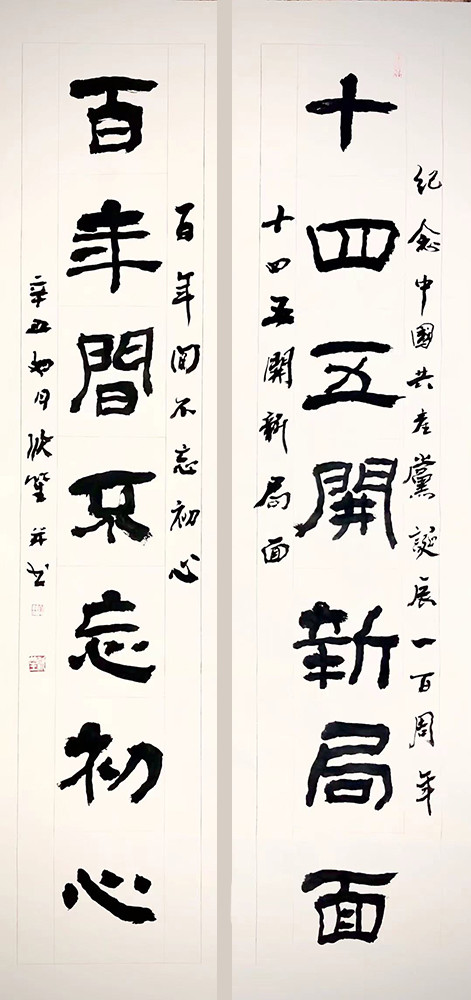 紀念中國共產黨誕辰一百周年
十四五開新局面
十四五開新局面
百年間不忘初心
百年間不忘初心
辛丑
月
並书